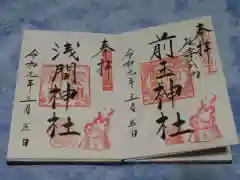 奉拝
前玉神社
令和元年五月五日
奉拝
浅間神社
令和元年五月五日